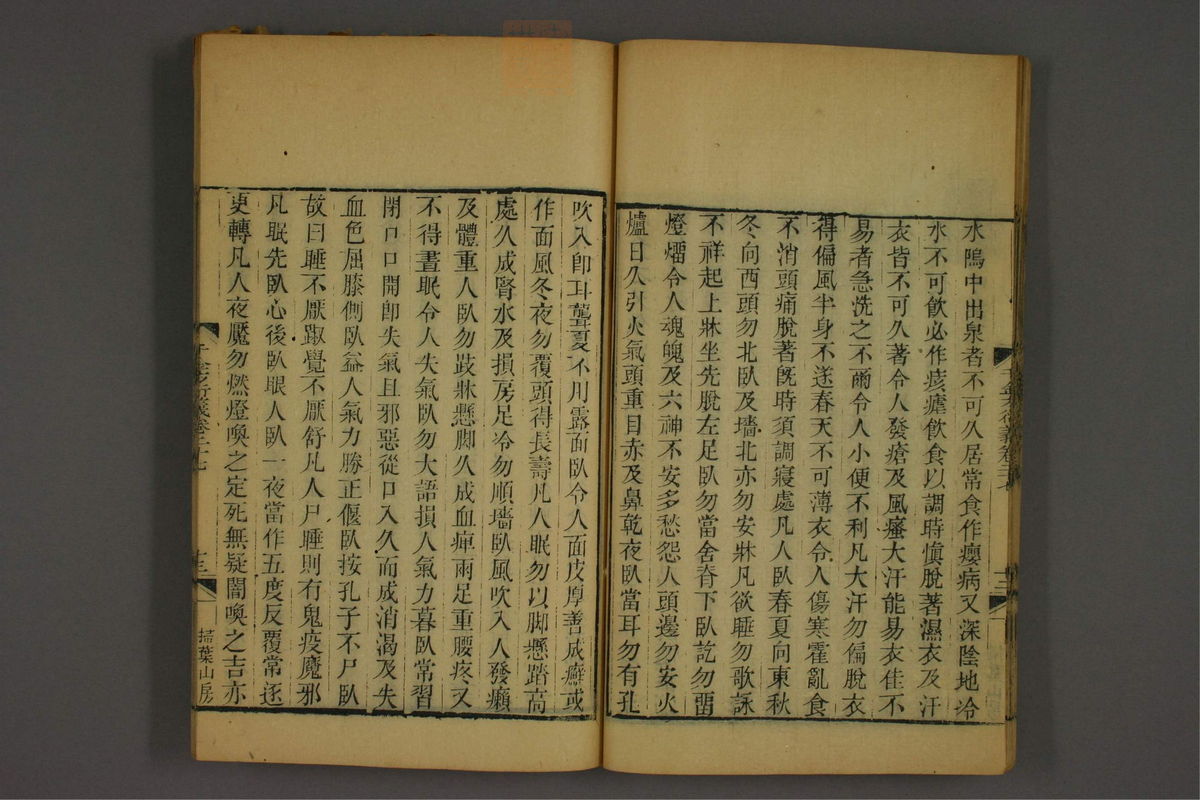 水隝中出泉者不可久居常食作癭病又深陰地冷
水不可飲必作痎瘧飲食以調時愼脫著濕衣及汗
衣皆不可久著令人發瘡及風瘙大汗能易衣佳不
易者急洗之不爾令人小便不利凡大汗勿偏脫衣
得偏風半身不遂春天不可薄衣令人傷寒霍亂食
不消頭痛脫著旣時須調寢處凡人臥春夏向東秋
冬向西頭勿北臥及墻北亦勿安牀凡欲睡勿歌詠
不祥起上牀坐先脫左足臥勿當舍脊下臥訖勿畱
燈燭令人魂魄及六神不安多愁怨人頭邊勿安火
爐日久引火氣頭重目赤及鼻乾夜臥當耳勿有孔
吹入卽耳聾夏不用露面臥令人面皮厚善成癬或
作面風冬夜勿覆頭得長壽凡人眠勿以脚懸踏高
處久成腎水及損房足冷勿順墻臥風吹入人發癩
及體重人臥勿跂牀懸脚久成血痺兩足重腰疼又
不得晝眠令人失氣臥勿大語損人氣力暮臥常習
閉口口開卽失氣且邪惡從口入久而成消渴及失
血色屈膝側臥益人氣力勝正偃臥按孔子不尸臥
故曰睡不厭踧覺不厭舒凡人尸睡則有鬼疫魔邪
凡眠先臥心後臥眼人臥一夜當作五度反覆常逐
更轉凡人夜魘勿燃燈喚之定死無疑闇喚之吉亦
千金方衍義卷二十七
十三
掃葉山房